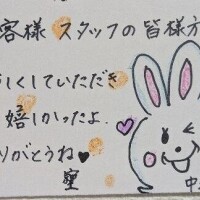 客様 スタッフの皆様方
しくしていただき
嬉しかったよ.
りがとうね♥
中